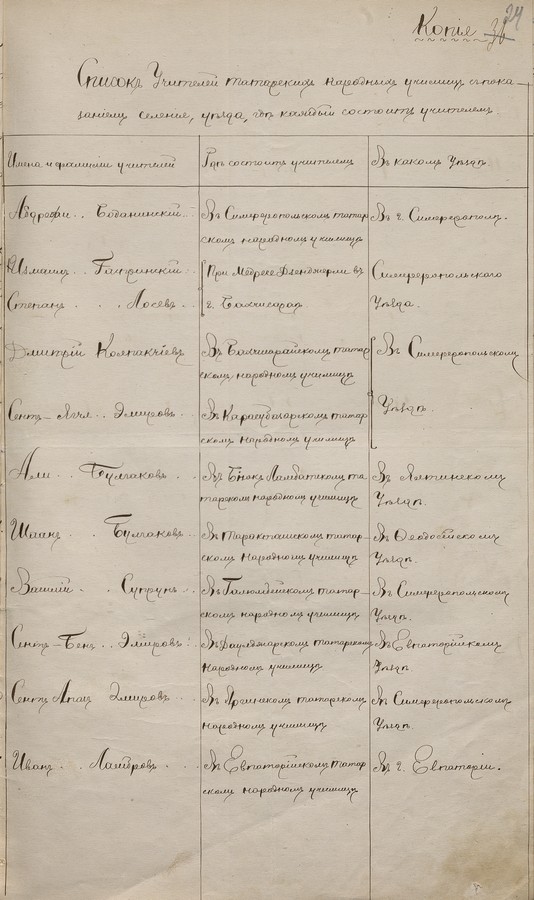 Копія 24
Списокъ Учителей татарскихъ народныхъ училищъ съ пока-
заніемъ селенія, уѣзда, гдѣ каждый состоитъ учителемъ.
Имена и фамиліи учителей
Гдѣ состоитъ учителемъ
Въ какомъ Уѣздѣ
Абдрефи . . Боданинскій
Въ Симферопольскомъ татар
скомъ народномъ училищѣ
Въ г. Симферополѣ.
Измаилъ . Гаспринскій
При Медресе Дженджерли въ
Симферопольскаго
Степанъ . . Лосевъ . .
г. Бахчисараѣ
Уѣзда.
Дмитрій Колпакчіевъ
Въ Бахчисарайскомъ татар
скомъ народномъ училищѣ
Въ Симферопольскомъ
Сеитъ - . Эмировъ . .
Въ Карасубазарскомъ татар
скомъ народномъ училищѣ
Уѣздѣ.
Али . . Булгаковъ . .
Въ Біюкъ Ламбатскомъ та
тарскомъ народномъ училищѣ
Въ Ялтинскомъ
Уѣздѣ.
. . Булгаковъ . .
Въ Таракташскомъ татар-
скомъ народномъ училищѣ
Въ Ѳеодосійскомъ
Уѣздѣ.
Василій . . Супрунъ . .
Въ татар-
скомъ народномъ училищѣ
Въ Симферопольскомъ
Уѣздѣ.
Сеитъ - Бекъ . Эмировъ . .
Въ татарскомъ
народномъ училищѣ
Въ Евпаторійскомъ
Уѣздѣ.
Сеитъ Эмировъ . .
Въ Яргинскомъ татарскомъ
народномъ училищѣ
Въ Симферопольскомъ
Уѣздѣ.
Иванъ . . . .
Въ Евпаторійскомъ татар
скомъ народномъ училищѣ
Въ г. Евпаторіи.